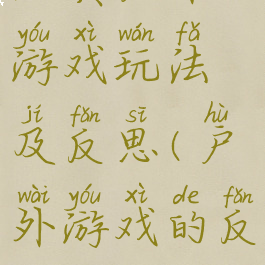 yóu xì wán fǎ
游戏玩法
jí fǎn sī hù
及反思(户
wài yóu xì de fǎn
外游戏的反